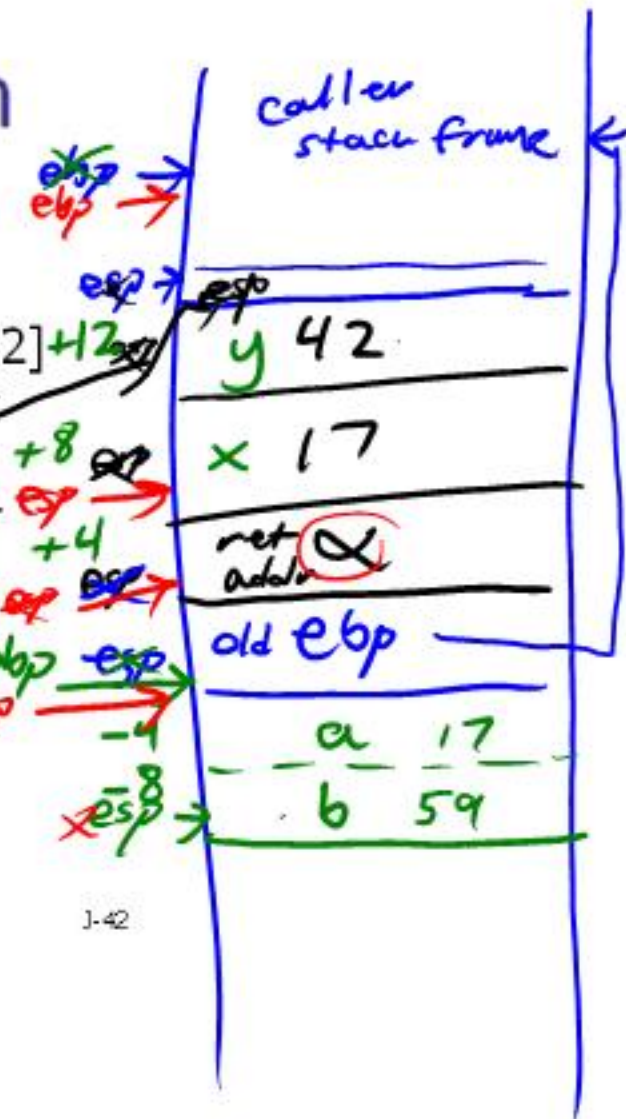 n
caller
stack frame
ebp
ebp
esp
esp
2] +12
y 42
+8 esp
x 17
esp
+4
ret α
addr
esp esp
old ebp
bp esp
p
-4
a 17
-8
b 59
esp
J-42